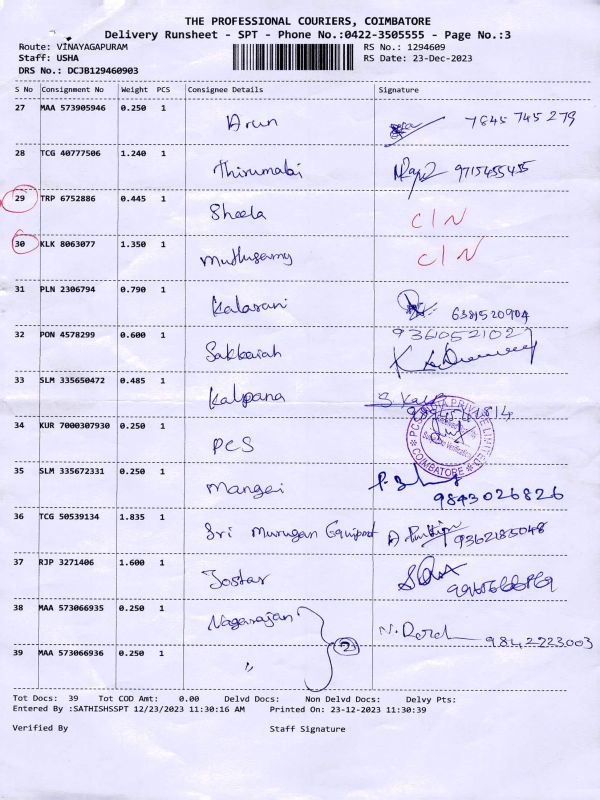 THE PROFESSIONAL COURIERS, COIMBATORE
Delivery Runsheet - SPT - Phone No.:0422-3505555 - Page No.:3
Route: VINAYAGAPURAM RS No.: 1294609
Staff: USHA RS Date: 23-Dec-2023
DRS No.: DCJB129460903
S No Consignment No Weight PCS Consignee Details Signature
27 MAA 573905946 0.250 1 Arun 7845 745 279
28 TCG 40777506 1.240 1 Thirumabi 9715455455
29 TRP 6752886 0.445 1 Sheela C/N
30 KLK 8063077 1.350 1 Muthusamy C/N
31 PLN 2306794 0.790 1 Kalarani 6381520904
32 PON 4578299 0.600 1 Sakkaiah 9361052102
33 SLM 335650472 0.485 1 Kalpana
34 KUR 7000307930 0.250 1 PCS
COIMBATORE
35 SLM 335672331 0.250 1 Mangai 9843026826
36 TCG 50539134 1.835 1 Sri Murugan Equipment 9362185048
37 RJP 3271406 1.600 1 Jostar
38 MAA 573066935 0.250 1 Nagarajan 9842223003
39 MAA 573066936 0.250 1 " 2
Tot Docs: 39 Tot COD Amt: 0.00 Delvd Docs: Non Delvd Docs: Delvy Pts:
Entered By :SATHISHSSPT 12/23/2023 11:30:16 AM Printed On: 23-12-2023 11:30:39
Verified By Staff Signature